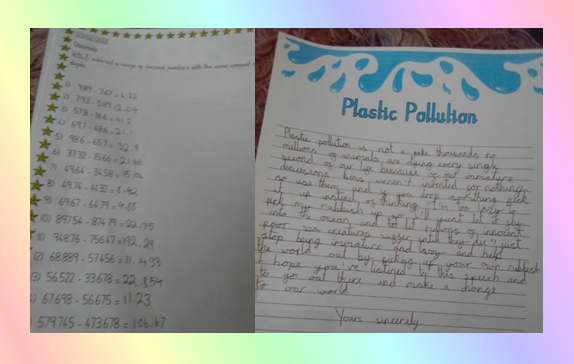 Decimals
WALT: subtract a range of decimal numbers with the same amount of
digits.
1) 9.89 - 3.67 = 6.22
2) 7.93 - 5.89 = 2.04
3) 57.8 - 16.6 = 41.2
4) 69.7 - 48.6 = 21.1
5) 98.6 - 65.7 = 32.9
6) 37.32 - 15.66 = 21.66
7) 49.64 - 34.58 = 15.06
8)
9) 69.67 - 64.79 = 4.88
10) 897.54 - 874.79 = 22.75
11) 948.76 - 756.47 = 192.29
12) 68.889 - 57.456 = 11.433
13) 56.522 - 33.678 = 22.854
67.698 - 56.675 = 11.23
579.745 - 473.678 = 106.67
Plastic Pollution
Plastic pollution is not a joke thousands no
millions of animals are dying every single
second of our life because of our immature
decisions bins weren't invented for nothing
so use them and if you drop something pick
it up instead of thinking "I'm too lazy to
pick my rubbish up so I'll just let it drift
into the ocean and to kill millions of innocent
poor sea creatures suffer until they die" just
stop being immature and lazy and help
the world out by picking up your own rubbish
I hope you've listened to this speech and
to go out there and make a change
to our world
Yours sincerely